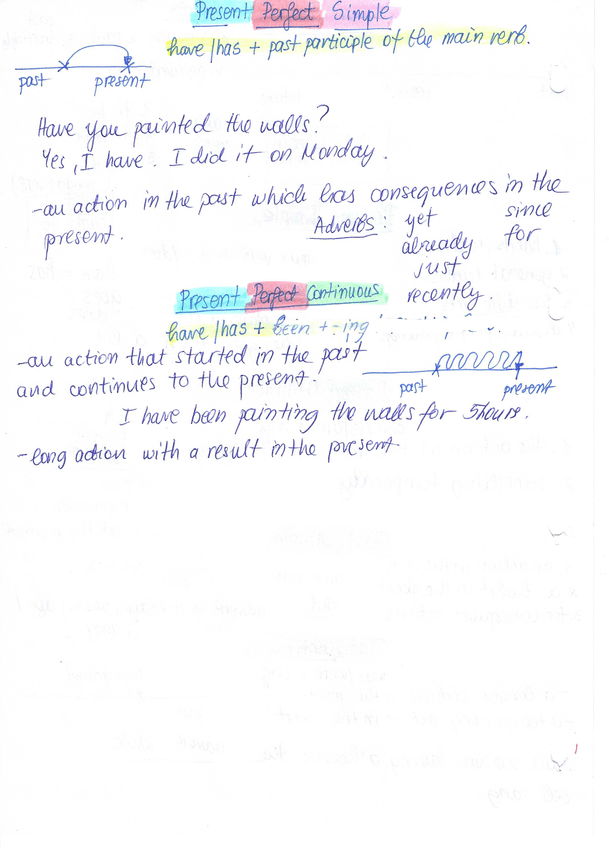 Present Perfect Simple
have/has + past participle of the main verb.
past present
Have you painted the walls?
Yes, I have. I did it on Monday.
-an action in the past which has consequences in the
present.
Adverbs: yet since
already for
just
recently
Present Perfect Continuous
have/has + been + -ing
-an action that started in the past
and continues to the present.
past present
I have been painting the walls for 5 hours.
-long action with a result in the present